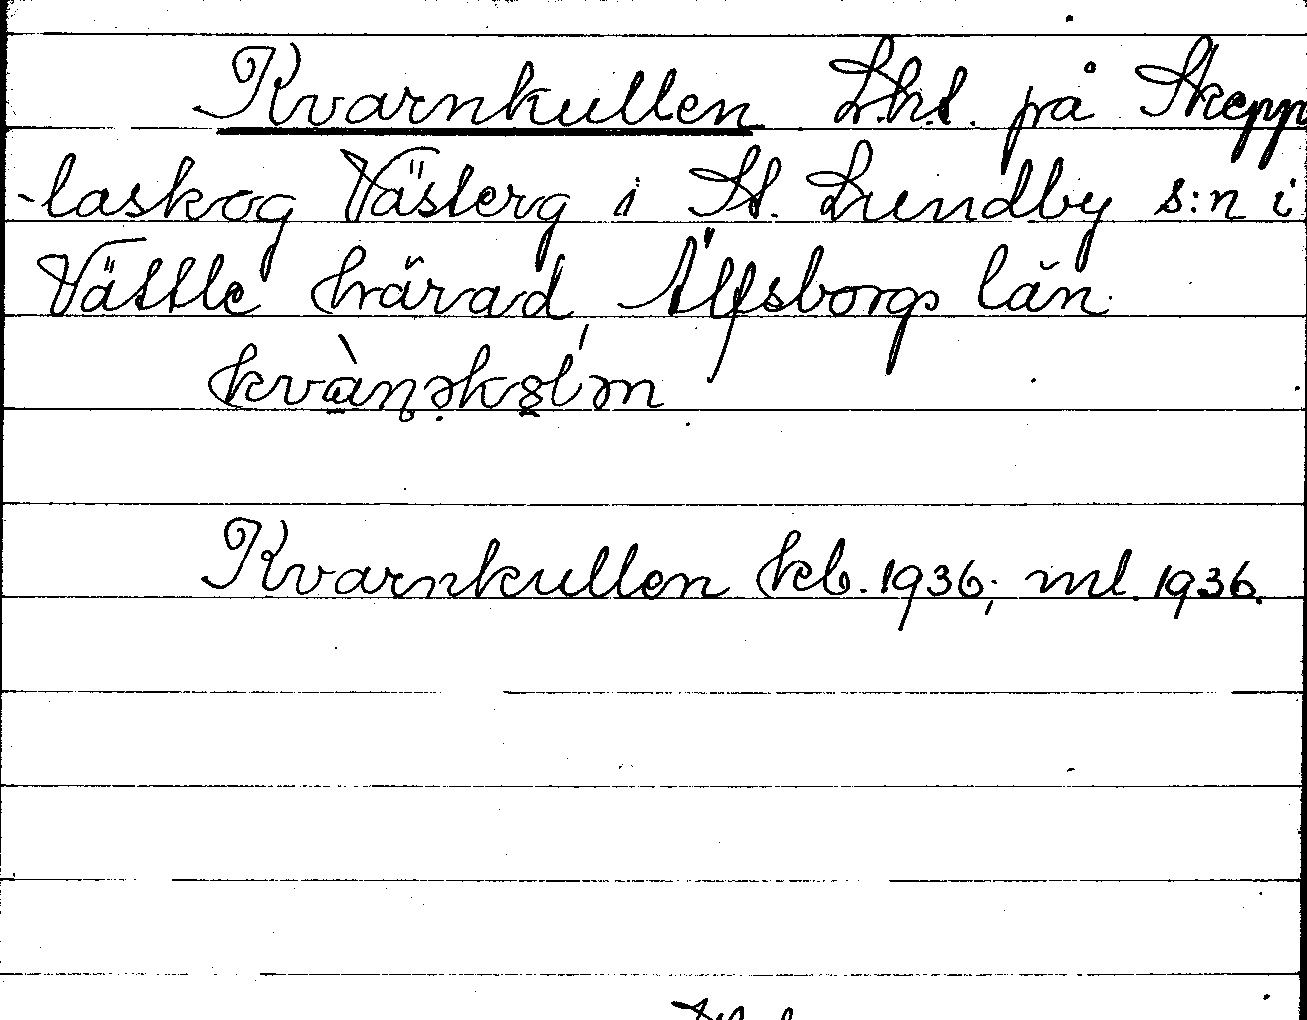 Kvarnkullen L.h.t. på Skepp
-laskog Västerg i St. Lundby s:n i
Vättle härad, Älfsborgs län.
Kvarnkullen kb. 1936; ml. 1936.